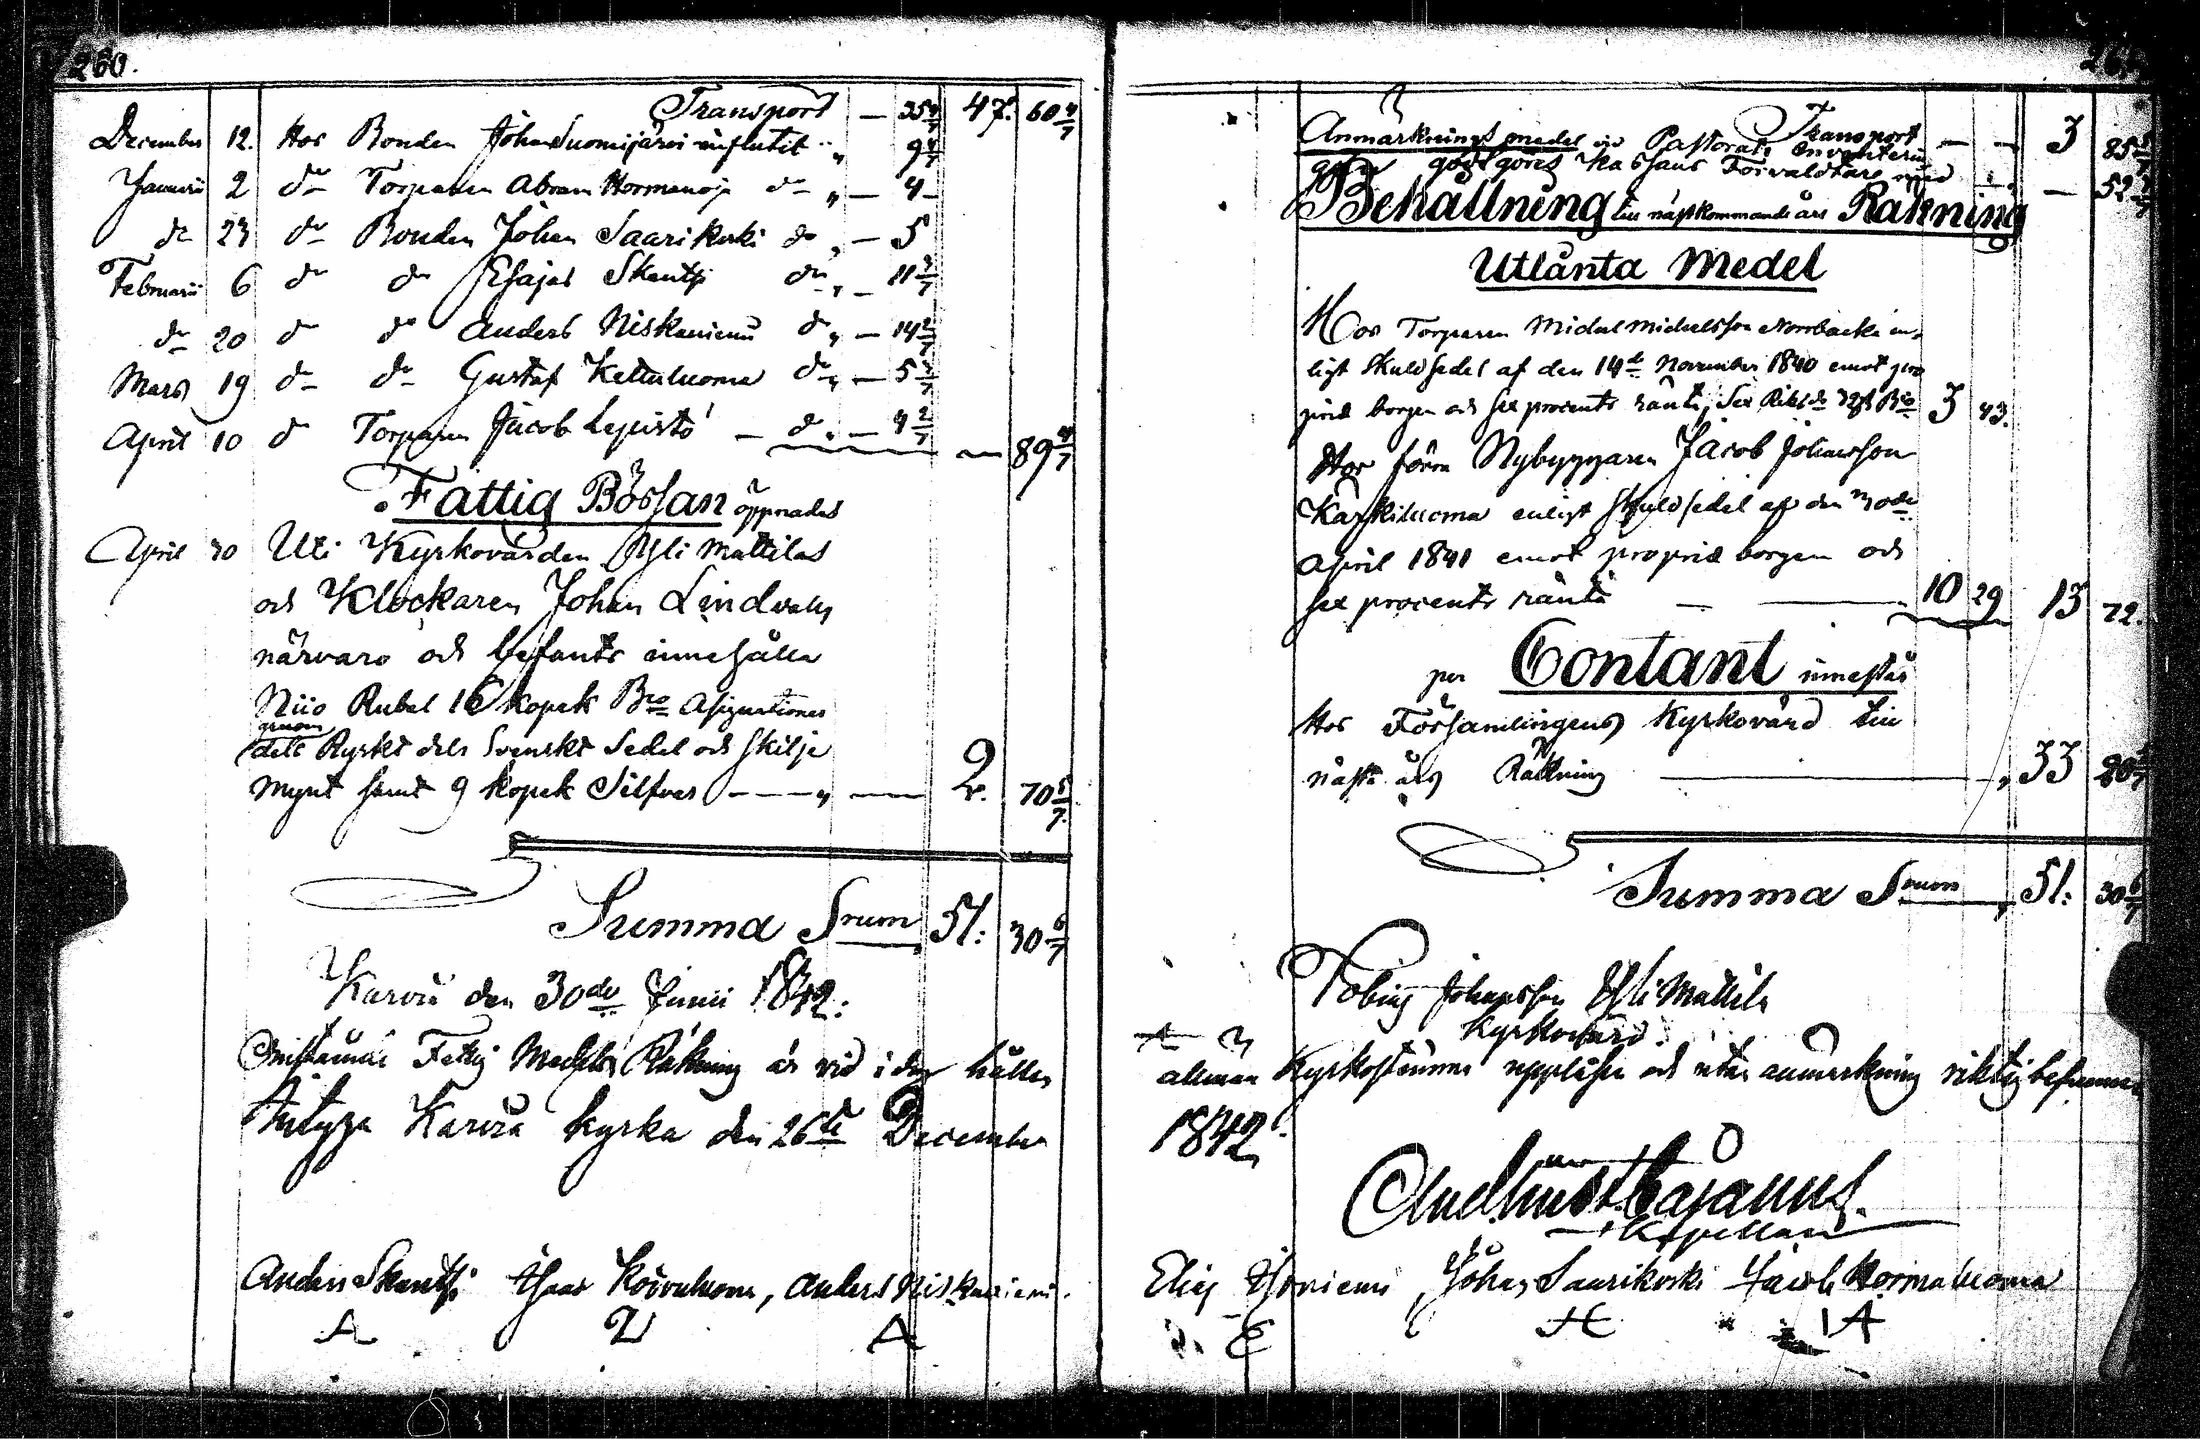 260.
Transport — 35 4/7 47. 60 4/7
December 12. Hos Bonden Johan Suomijärvi influtit " 9 4/7
Januarii 2 do Torparen Abram Hormanoja do " — 4 —
do 23 do Bonden Johan Saarikoski do " — 5
Februarii 6 do do Esajas Skantsi do " — 11 3/7
do 20 do do Anders Niskaniemi do " — 14 2/7
Mars 19 do do Gustaf Kettuluoma do " — 5
April 10 do Torparen Jacob Lepistö — do " — 4 2/7 — 89 4/7
Fattig Bössan öppnades
April 30 Uti Kyrkovärden Yli Mattilas
och Klockaren Johan Lindvalls
närvaro och befants innehålla
Niio Rubel 16 kopek Bco Assignationer
genom
dels Ryskt dels Svenskt Sedel och skilje
mynt samt 9 kopek Silfver — — " — 2 r. 70 5/7
Summa Srum 51: 30 6/7
Karvia den 30de Junii 1842:
Omstående Fattig Medels Räkning är vid i dag hållen
Karvia kyrka den 26te December
Anders Skantsi Isaac Koivuluoma, Anders Niskaniemi.
A A
Transport — — 3 85
Anmärknings medel vid Pastorats Inventerin
godtgöres Kassans Förvaldtare med — 52
Behållning till nästkommande års Räkning
Utlånta Medel
Hos Torparen Michel Michelsson Norrbacka en-
ligt Skuldsedel af den 14de November 1840 emot pro
prie borgen och sex procents ränta, Sex Riksdr 32 s Bco 3 43.
Hos förra Nybyggaren Jacob Johansson
Karkiluoma enligt skuldsedel af den 30de
April 1841 emot proprie borgen och
sex procents ränta — — 10 29 13 72.
per Contant innestår
Hos Församlingens Kyrkovärd till
nästa års Räkning — " 33 20
Summa Srum " 51: 30 6/7
Tobias Johansson Yli Mattila
Kyrkovärd.
allmän Kyrkostämma uppläsen och utan anmärkning riktig befunnen
1842.
Cajanus.
Kapellan
Elias Johan Saarikoski Jacob Hormaluoma
E H A